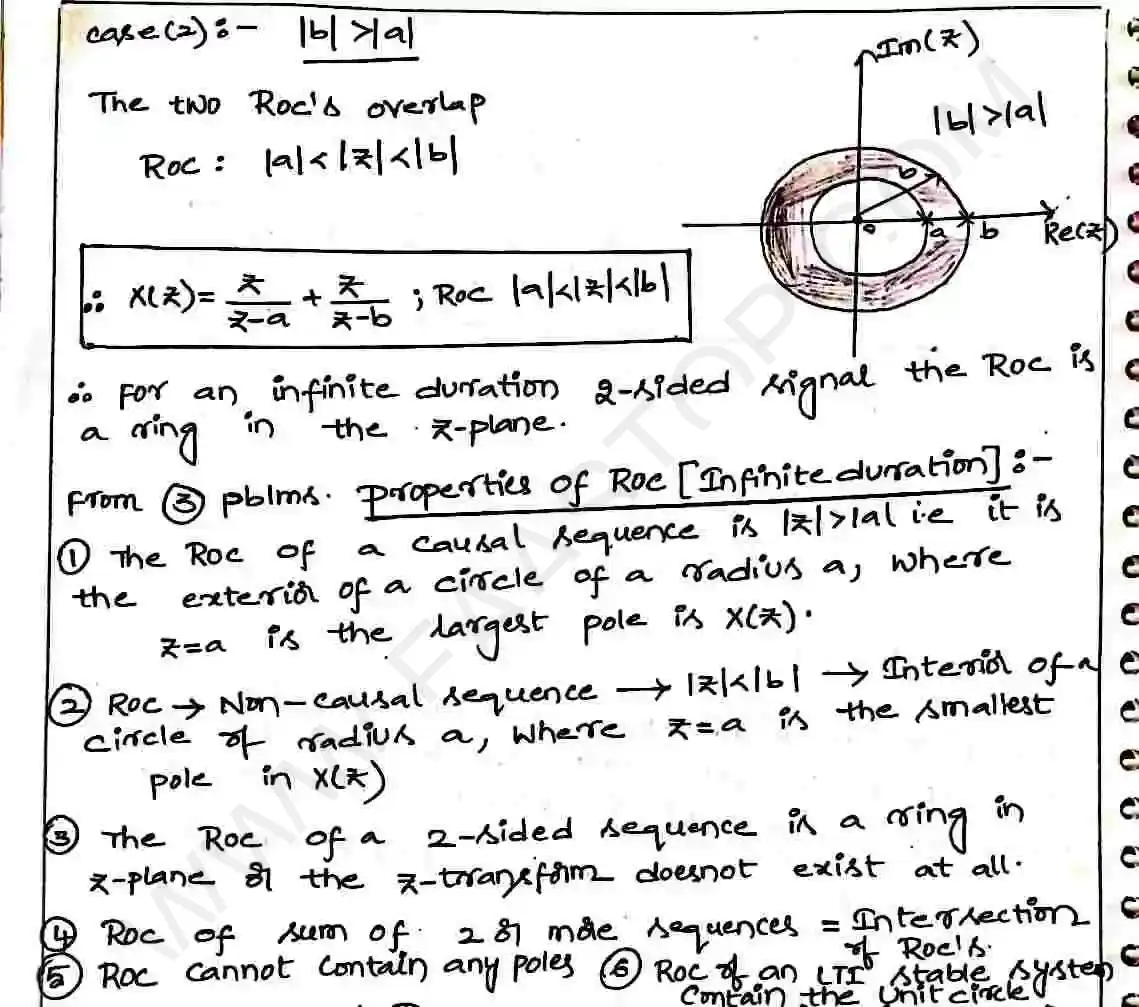 case(2):- |b|>|a|
The two Roc's overlap
Roc: |a|<|z|<|b|
Im(z)
|b|>|a|
b
o
a
b
Re(z)
∴ X(z)= z/z-a + z/z-b ; Roc |a|<|z|<|b|
∴ For an infinite duration 2-sided signal the Roc is
a ring in the z-plane.
From ③ pblms. Properties of Roc [Infinite duration]:-
① The Roc of a causal sequence is |z|>|a| i.e it is
the exterior of a circle of a radius a, where
z=a is the largest pole is X(z).
② Roc → Non-causal sequence → |z|<|b| → Interior of a
circle of radius a, where z=a is the smallest
pole in X(z)
③ The Roc of a 2-sided sequence is a ring in
z-plane or the z-transform doesnot exist at all.
④ Roc of sum of 2 or more sequences = Intersection
of Roc's.
⑤ Roc cannot contain any poles ⑥ Roc of an LTI stable system
contain the unit circle